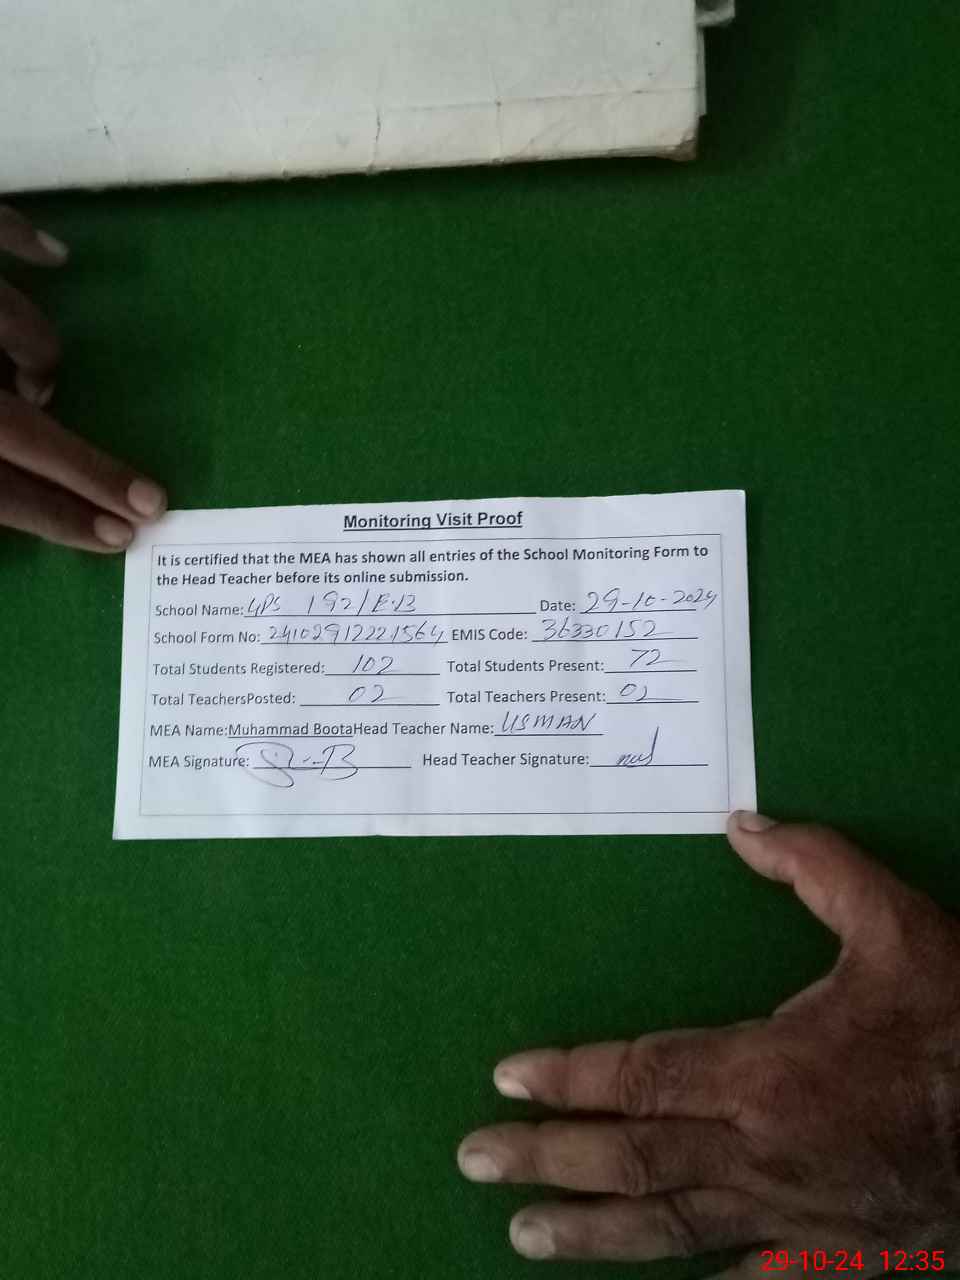 Monitoring Visit Proof
It is certified that the MEA has shown all entries of the School Monitoring Form to
the Head Teacher before its online submission.
School Name: GPS 192/E.B Date: 29-10-2024
School Form No: 24102912221564 EMIS Code: 36330152
Total Students Registered: 102 Total Students Present: 72
Total TeachersPosted: 02 Total Teachers Present: 02
MEA Name:Muhammad BootaHead Teacher Name: USMAN
MEA Signature: Head Teacher Signature:
29-10-24 12:35